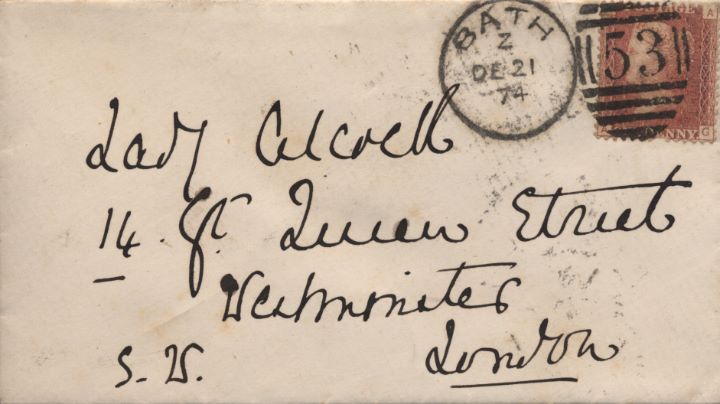 BATH
Z
DE 21
74
53
A
PENNY
G
Lady Alcock
14 Gt. Queen Street
Westminster
S. W.
London